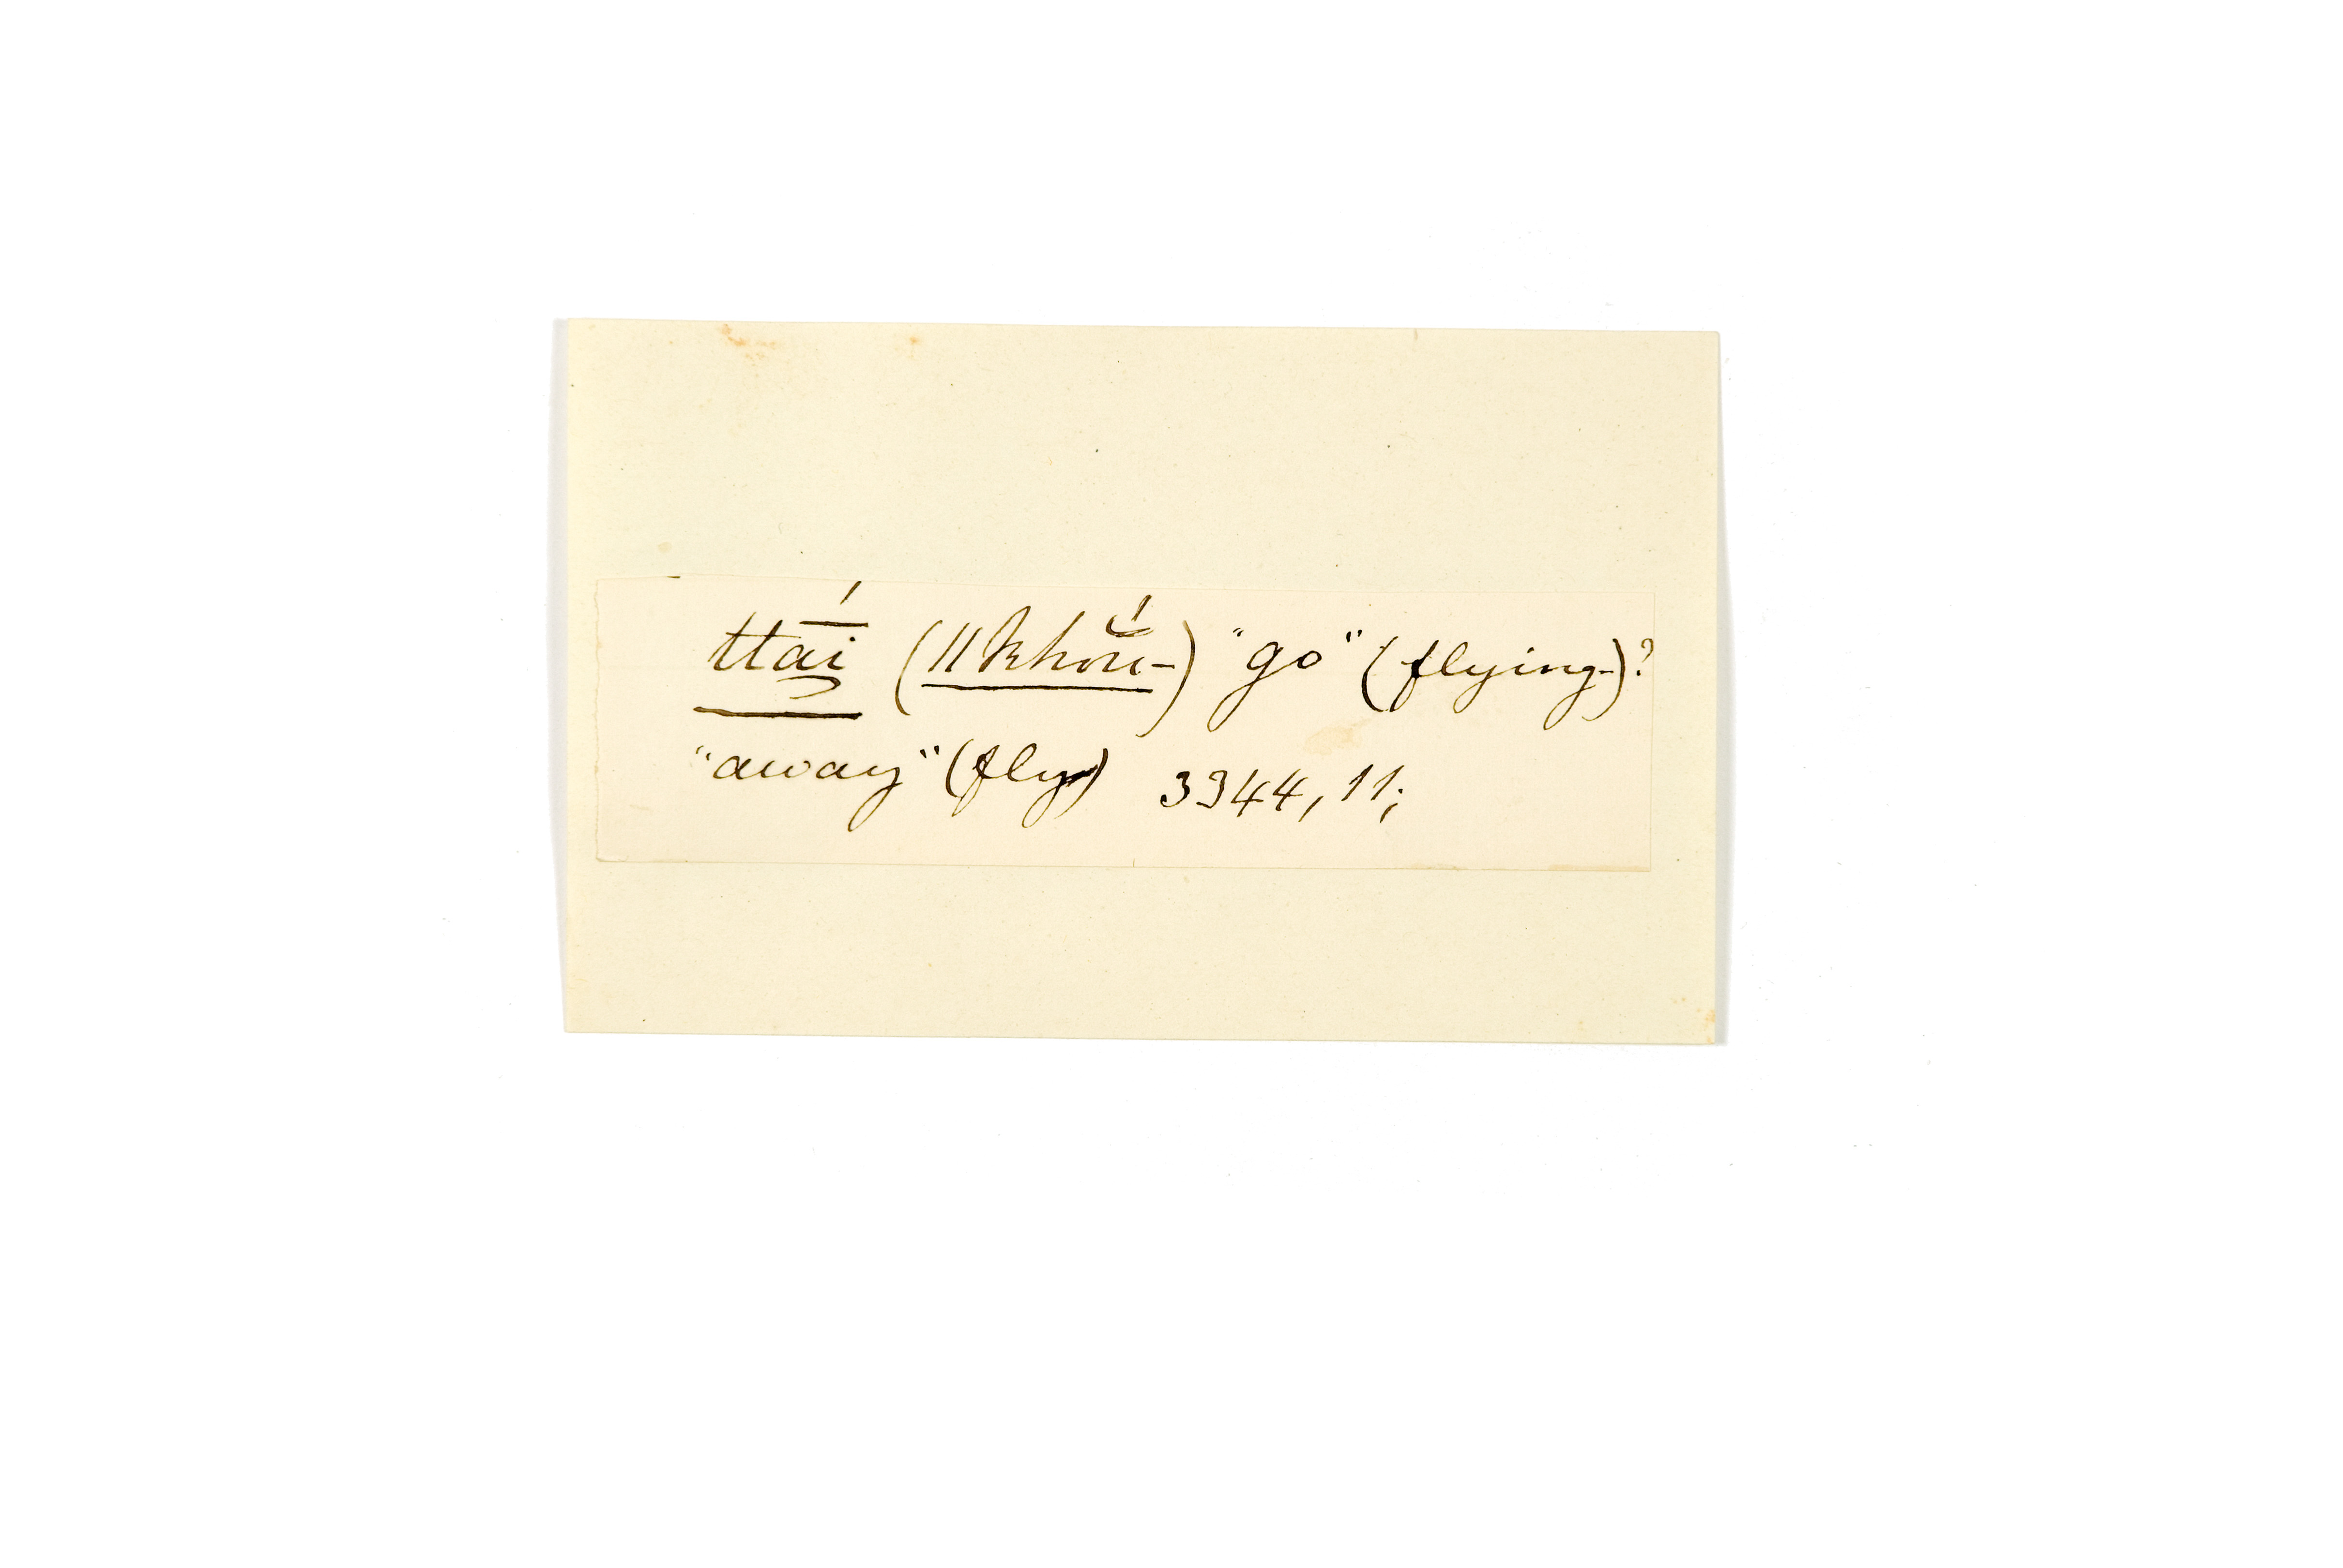 ttā́i̯ (ǁkhoū̆́-) "go" (flying-)?
"away" (fly) 3344, 11;